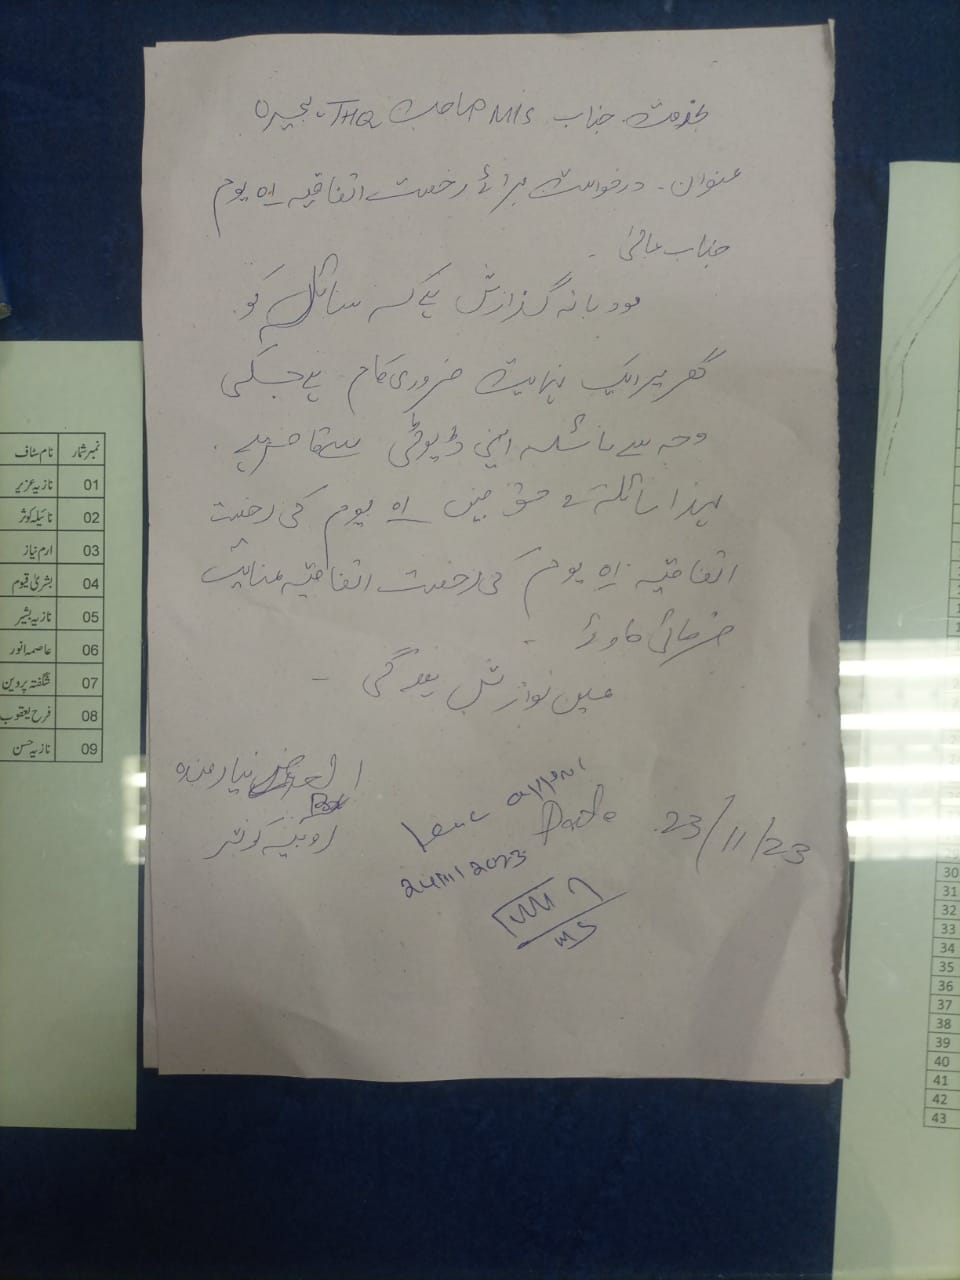 بخدمت جناب M/S صاحب THQ ہجیرہ
عنوان۔ درخواست برائے رخصت اتفاقیہ 01 یوم
جناب عالیٰ۔
مودبانہ گذارش ہے کہ سائلہ کو
گھر پر ایک نہایت ضروری کام ہے جسکی
وجہ سے سائلہ اپنی ڈیوٹی سے قاصر ہے۔
لہذا سائلہ کے حق میں 01 یوم کی رخصت
اتفاقیہ 01 یوم کی رخصت اتفاقیہ عنایت
فرمائی جاوے۔
عین نوازش ہوگی۔
العارض نیازمندہ
روبینہ کوثر
23/11/23
Leave
24/11/2023
MS
نمبر شمار نام سٹاف
01 نازیہ عزیر
02 نائیلہ کوثر
03 ارم نیاز
04 بشریٰ قیوم
05 نازیہ بشیر
06 عاصمہ انور
07 شگفتہ پروین
08 فرح یعقوب
09 نازیہ حسن
30
31
32
33
34
35
36
37
38
39
40
41
42
43